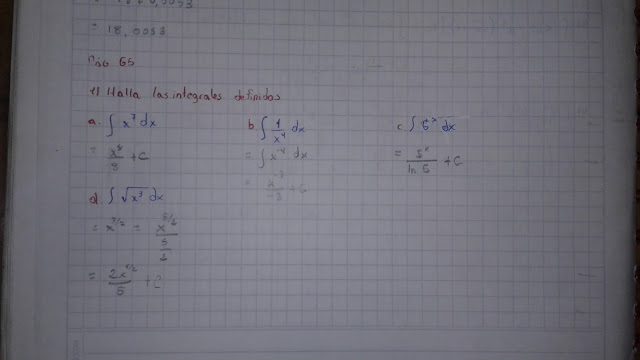 = 18,0093
1) Halla las integrales definidas
a. ∫ x⁷ dx
= x⁸/8 + C
b) ∫ 1/x⁴ dx
= ∫ x⁻⁴ dx
= x⁻³/-3 + C
c. ∫ 5ˣ dx
= 5ˣ/ln 5 + C
d) ∫ √x³ dx
= x^3/2 = x^5/2 / 5/2
= 2x^5/2 / 5 + C